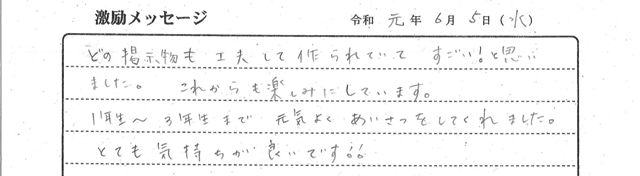 激励メッセージ 令和 元年 6月 5日(水)
どの掲示物も 工夫して作られていて すごい!と思い
ました。 これからも楽しみにしています。
1年生～3年生まで 元気よく あいさつをしてくれました。
とても気持ちが良いです!!